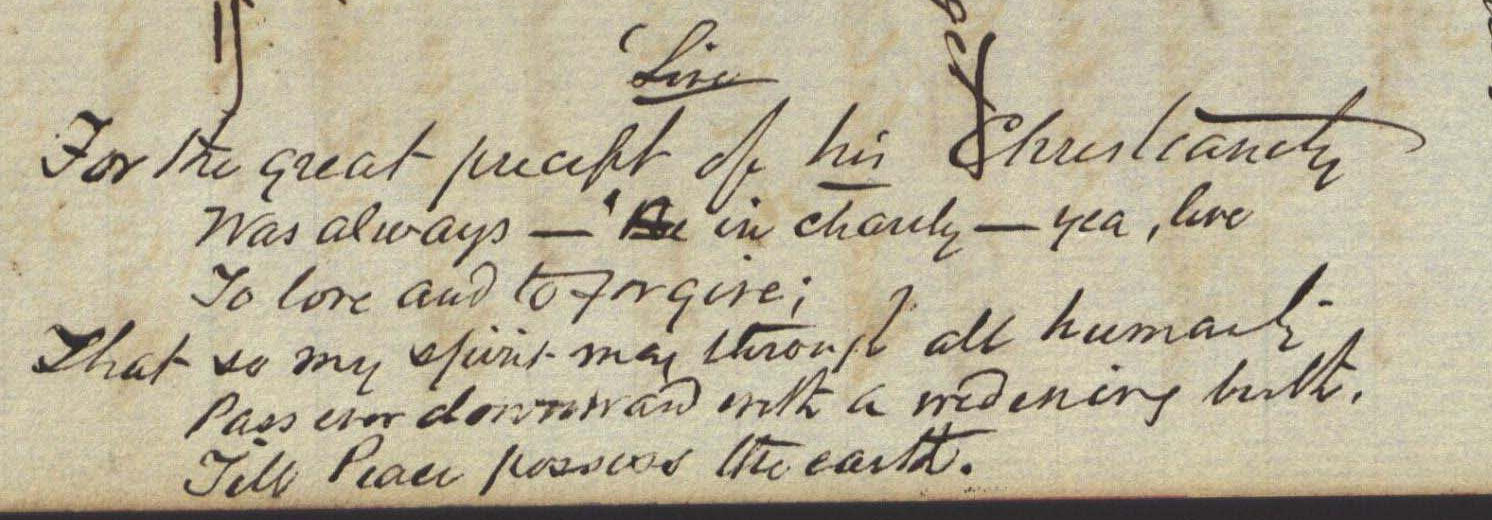 'Live
For the great precept of his Christianity
Was always — 'Be in charity — yea, live
To love and to forgive;
That so my spirit may through all humanity
Pass ever downward with a widening birth,
Till Peace possess the earth.